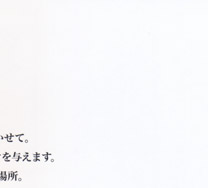 いせて。
を与えます。
場所。